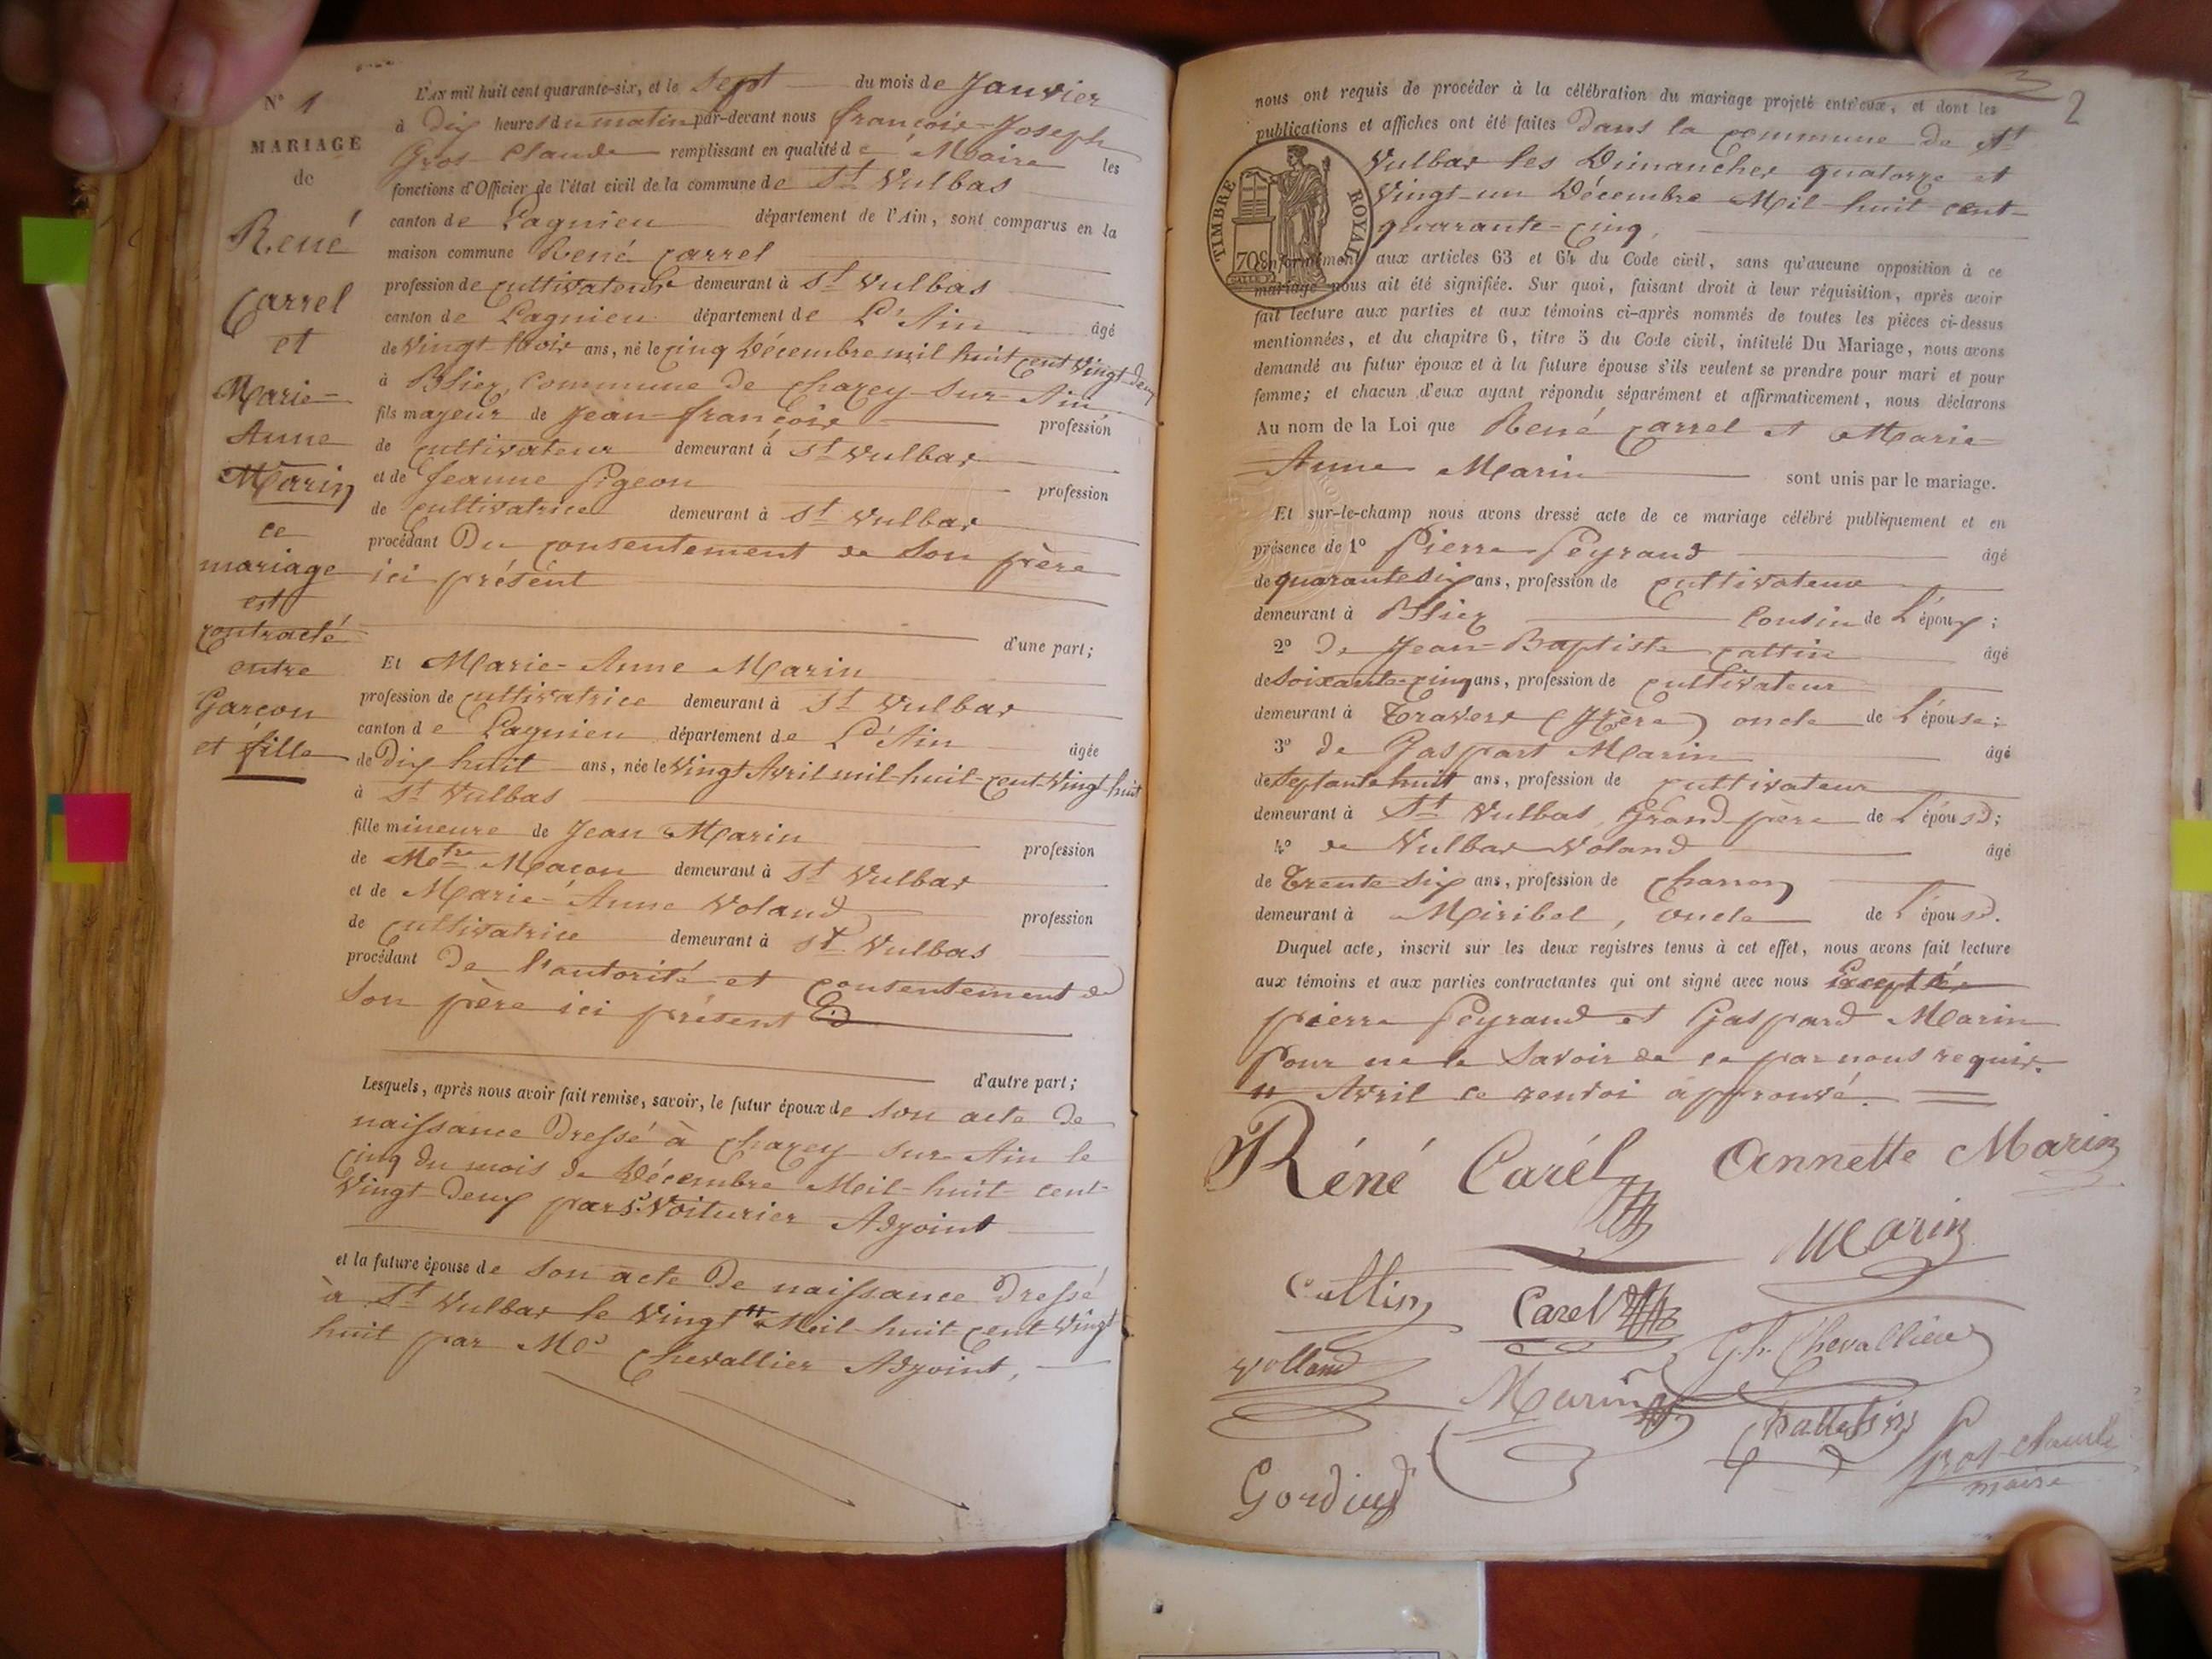 N° 1
MARIAGE
de
René
Carrel
et
Marie-
Anne
Marin
ce
mariage
est
contracté
entre
Garcon
et fille
L'AN mil huit cent quarante-six, et le Sept du mois de Janvier
à Dix heures du matin par-devant nous françois-Joseph
Gros Claude remplissant en qualité de Maire les
fonctions d'Officier de l'état civil de la commune de St Vulbas
canton de Lagnieu département de l'Ain, sont comparus en la
maison commune René Carrel
profession de cultivateur demeurant à St Vulbas
canton de Lagnieu département de L'Ain âgé
de Vingt trois ans, né le cinq Décembre mil huit cent vingt-deux
à Blier, Commune de Charey-sur-Ain,
fils majeur de Jean-françois profession
de cultivateur demeurant à St Vulbas
et de Jeanne Pigeon profession
de cultivatrice demeurant à St Vulbas
procédant Du consentement de Son père
ici présent
d'une part;
Et Marie-Anne Marin
profession de cultivatrice demeurant à St Vulbas
canton de Lagnieu département de L'Ain âgée
de Dix huit ans, née le Vingt Avril mil-huit-cent-vingt-huit
à St Vulbas
fille mineure de Jean Marin profession
de Mtre Maçon demeurant à St Vulbas
et de Marie-Anne Voland profession
de cultivatrice demeurant à St Vulbas
procédant De l'autorité et consentement de
Son père ici présent
d'autre part;
Lesquels, après nous avoir fait remise, savoir, le futur époux de Son acte De
naissance Dressé à Charey sur Ain le
cinq du mois de Décembre Mil-huit-cent-
Vingt-Deux par Voiturier Adjoint
et la future épouse de Son acte De naissance Dressé
à St Vulbas le Vingt " Mil-huit-cent-Vingt
huit par Mr Chevallier Adjoint,
2
nous ont requis de procéder à la célébration du mariage projeté entr'eux, et dont les
publications et affiches ont été faites Dans la commune de St
Vulbas les Dimanches quatorze et
Vingt-un Décembre Mil-huit cent-
quarante-cinq,
TIMBRE ROYAL
conformément aux articles 63 et 64 du Code civil, sans qu'aucune opposition à ce
mariage nous ait été signifiée. Sur quoi, faisant droit à leur réquisition, après avoir
fait lecture aux parties et aux témoins ci-après nommés de toutes les pièces ci-dessus
mentionnées, et du chapitre 6, titre 5 du Code civil, intitulé Du Mariage, nous avons
demandé au futur époux et à la future épouse s'ils veulent se prendre pour mari et pour
femme; et chacun d'eux ayant répondu séparément et affirmativement, nous déclarons
Au nom de la Loi que René Carrel et Marie-
Anne Marin sont unis par le mariage.
Et sur-le-champ nous avons dressé acte de ce mariage célébré publiquement et en
présence de 1° Pierre Peyraud âgé
de quarante six ans, profession de cultivateur
demeurant à Blier Cousin de L'époux;
2° De Jean-Baptiste Cattin âgé
de Soixante-cinq ans, profession de cultivateur
demeurant à Travers (Isère) oncle de L'épouse;
3° de Gaspart Marin âgé
de Septante huit ans, profession de cultivateur
demeurant à St Vulbas, Grand-père de L'épouse;
4° de Vulbas Voland âgé
de Trente six ans, profession de Charron
demeurant à Miribel, Oncle de L'épouse.
Duquel acte, inscrit sur les deux registres tenus à cet effet, nous avons fait lecture
aux témoins et aux parties contractantes qui ont signé avec nous Exceptés
pierre Peyraud et Gaspard Marin
pour ne le Savoir de ce par nous requis.
" Avril ce renvoi approuvé.
Réné Carél Annette Marin
Marin
Cattin Carel
G.h. Chevallier
Volland Marin
Gros-claude
maire